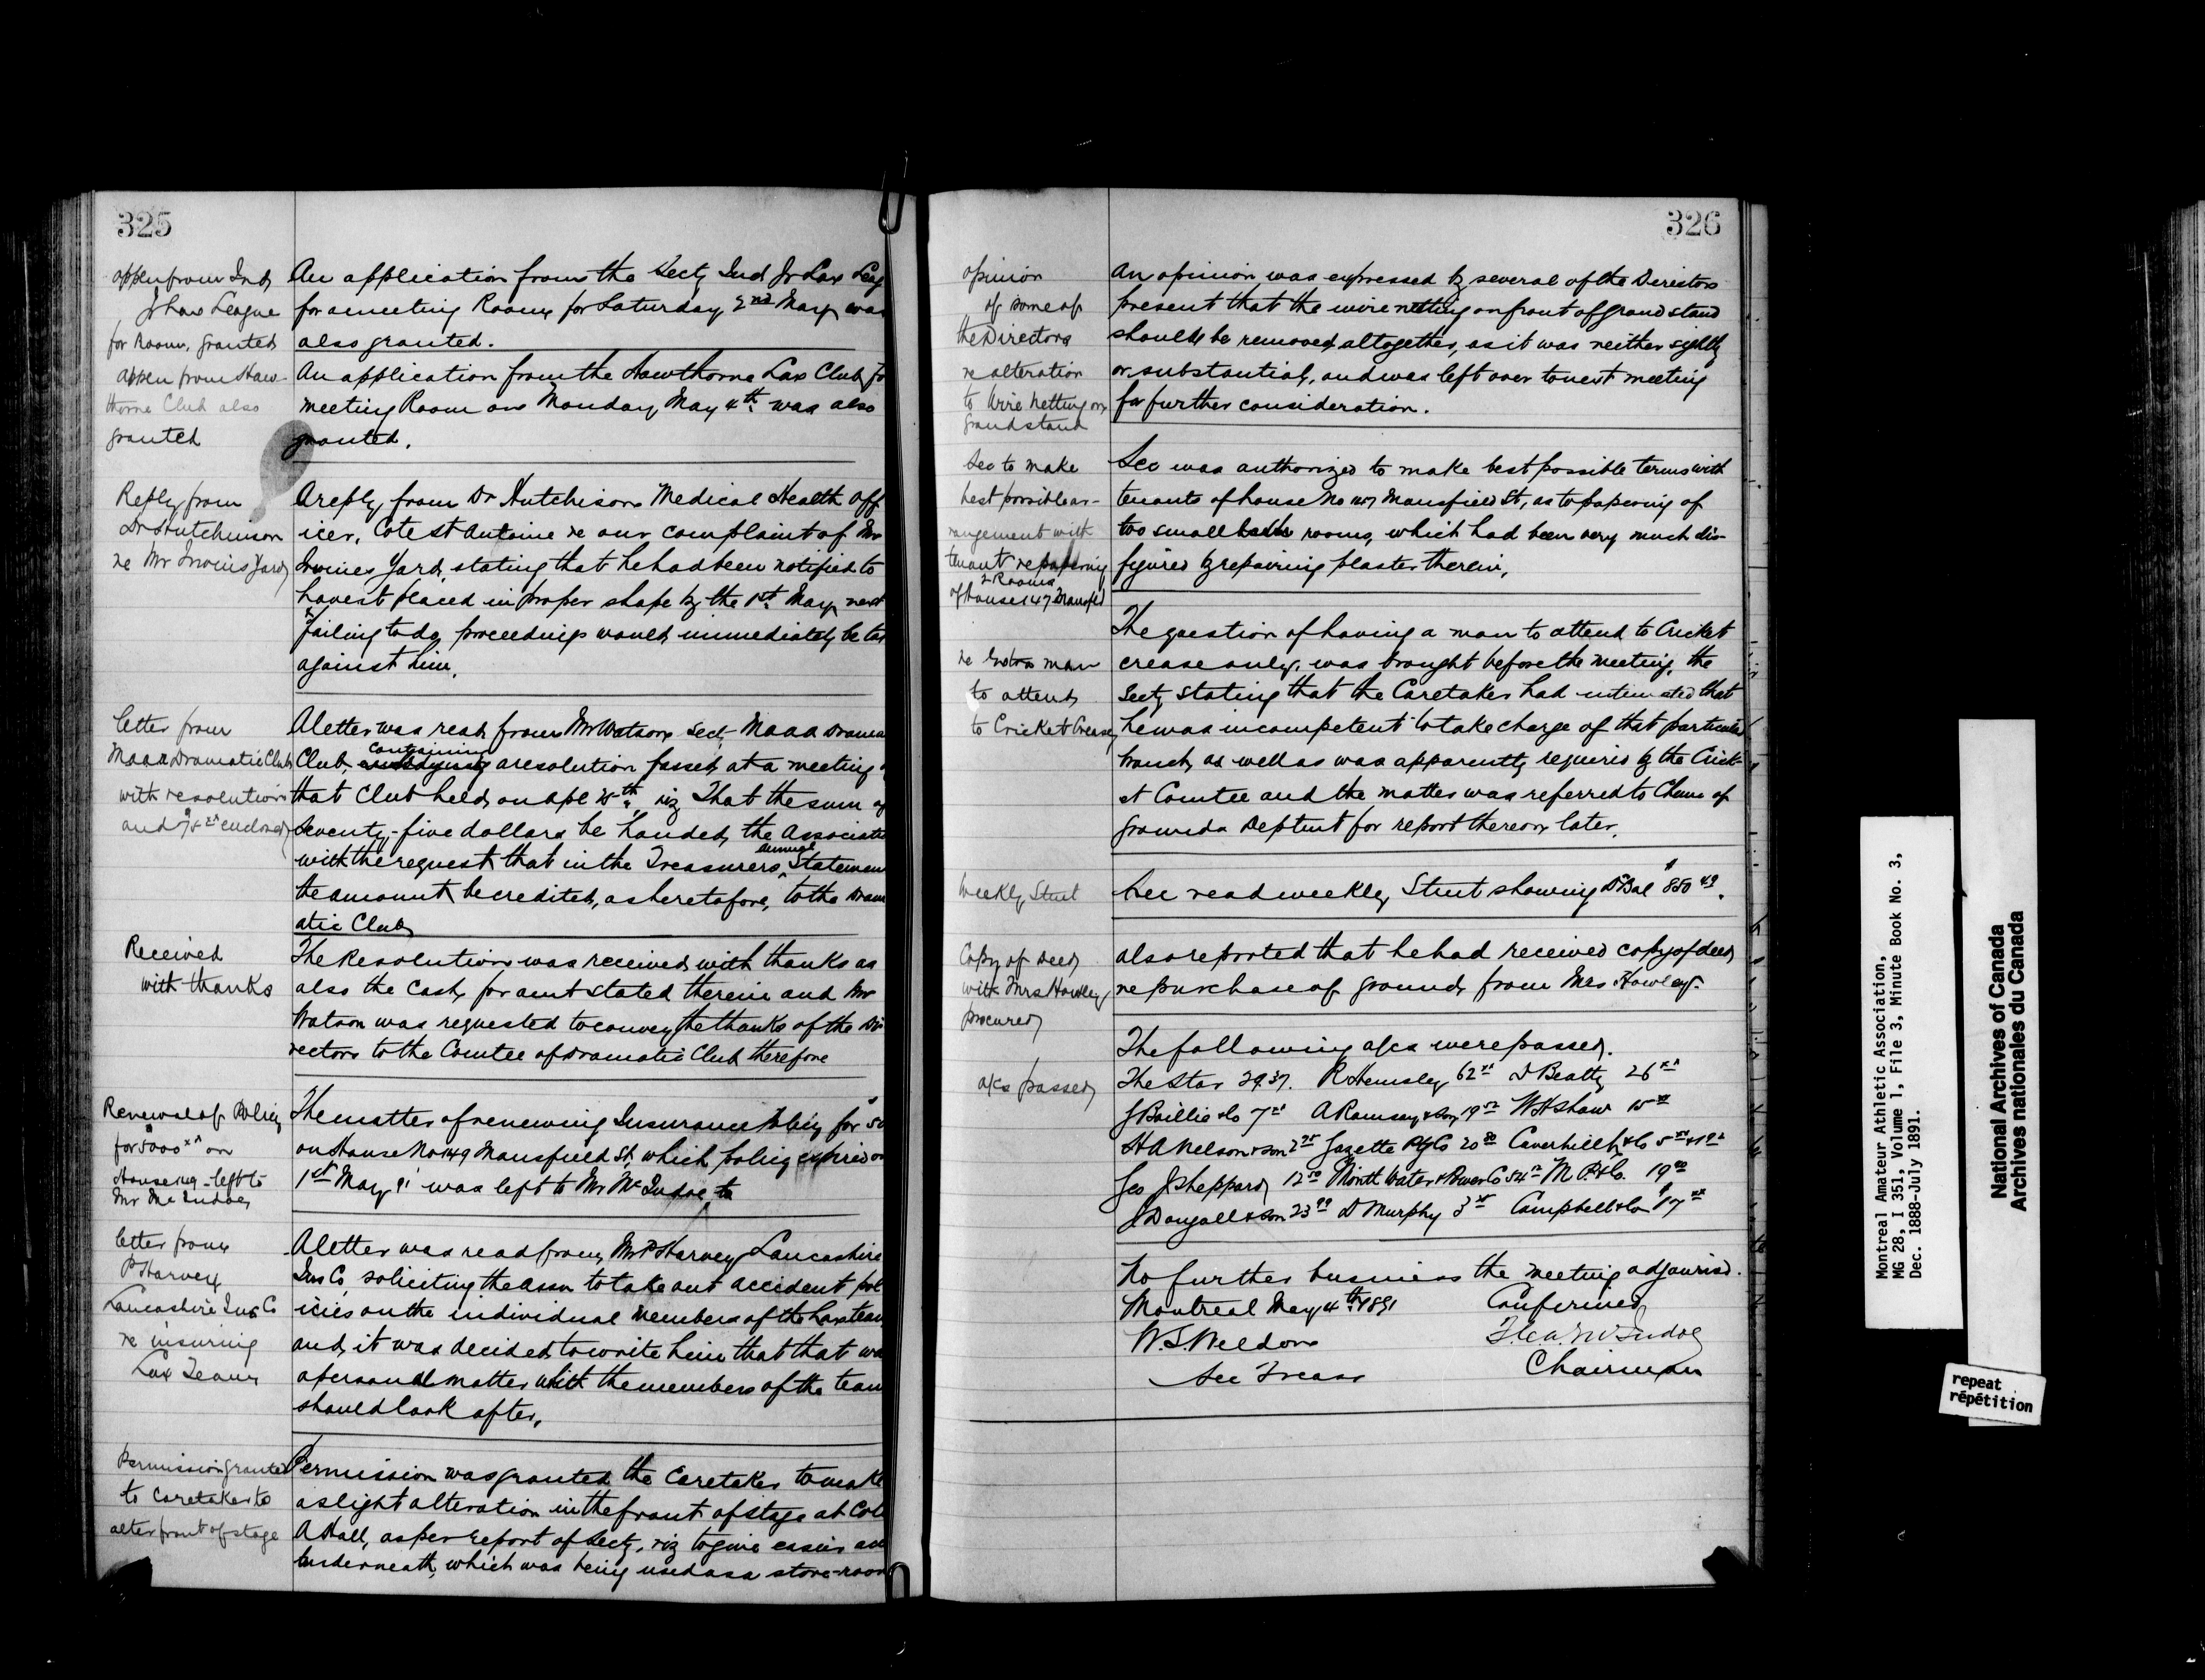 325
appen from Ind
Jr Lax League
for Room, granted
An application from the Secty Ind Jr Lax Leag
for a meeting Room for Saturday 2nd May was
also granted.
appen from Haw-
thorne Club also
granted
An application from the Hawthorne Lax Club fo
meeting Room on Monday May 4th was also
granted.
Reply from
Dr Hutchinson
re Mr Irwins Yard
A reply from Dr Hutchison Medical Health Off
icer, Cote St Antoine re our complaint of Mr
Irwines Yard, stating that he had been notified to
have it placed in proper shape by the 1st May next
failing to do, proceedings would immediately be ta
against him.
letter from
Maaa Dramatic Club
with resolution
and enclosed
A letter was read from Mr Watson Sect Maaa Drama
Club, containing a resolution passed at a meeting
that Club held on Apl 25th viz That the sum of
Seventy-five dollars be handed the Associat
with the request that in the Treasurers annual Statemen
the amount be credited, as heretofore, to the Dram
atic Club
Received
with thanks
The Resolution was received with thanks as
also the Cash for amt stated therein and Mr
Watson was requested to convey the thanks of the Di
rectors to the Comtee of Dramatic Club therefore
Renewal of Policy
for 5000 xx on
House 149 - left to
Mr McIndoe
The matter of renewing Insurance Policy for $50
on House No 149 Mansfield St, which policy expired on
1st May 91 was left to Mr McIndoe to
letter from
P Harvey
Lancashire Ins Co
re insuring
Lax Team
A letter was read from Mr P Harvey Lancashire
Ins Co, soliciting the assn to take out accident pol
icies on the individual members of the Lax team
and it was decided to write him that that wa
a personal matter which the members of the team
should look after.
Permission granted
to Caretaker to
alter front of stage
Permission was granted the Caretaker to make
a slight alteration in the front of stage at Col
A Hall, as per report of Secty, viz to give easier acc
underneath, which was being used as a store-room
326
opinion
of some of
the Directors
re alteration
to Wire Netting on
Grandstand
An opinion was expressed by several of the Directors
present that the wire netting on front of Grand stand
should be removed altogether, as it was neither sightly
or substantial, and was left over to next meeting
for further consideration.
Sec to make
best possible ar-
rangement with
tenant re papering
2 Rooms
of House 147 Mansfld
Sec was authorized to make best possible terms with
tenants of house No 147 Mansfield St, as to papering of
two small rooms, which had been very much dis-
figured by repairing plaster therein.
re Extra man
to attend
to Cricket Crease
The question of having a man to attend to Cricket
crease only, was brought before the meeting, the
Secty stating that the Caretaker had intimated that
he was incompetent to take charge of that particular
branch, as well as was apparently required by the Crick-
et Comtee and the matter was referred to Chmn of
Grounds Deptmt for report thereon later.
Weekly Stmt
Sec read weekly Stmt showing Dr Bal $850 49.
Copy of Deed
with Mrs Howley
procured
also reported that he had received copy of deed
re purchase of ground from Mrs Howley.
a/cs passed
The following a/cs were passed.
The Star 29.37. R Hemsley 62 xx D Beatty 26 xx
J Baillie & Co 7 A Ramsay & Son 19 W H Shaw 15 xx
H A Nelson & Son 2 25 Gazette Ptg Co 20 80 Caverhill & Co 5
Geo J Sheppard 12 50 Montl Water & Power Co 54 M P & Co. 19 00
J Dougall & Son 23 99 D Murphy 3 Campbell & Co $17 xx
No further business the meeting adjourned.
Montreal May 4th 1891
Confirmed
W. S. Weldon
Sec Treas
Thos. McIndoe
Chairman
Montreal Amateur Athletic Association,
MG 28, I 351, Volume 1, File 3, Minute Book No. 3,
Dec. 1888-July 1891.
National Archives of Canada
Archives nationales du Canada
repeat
répétition